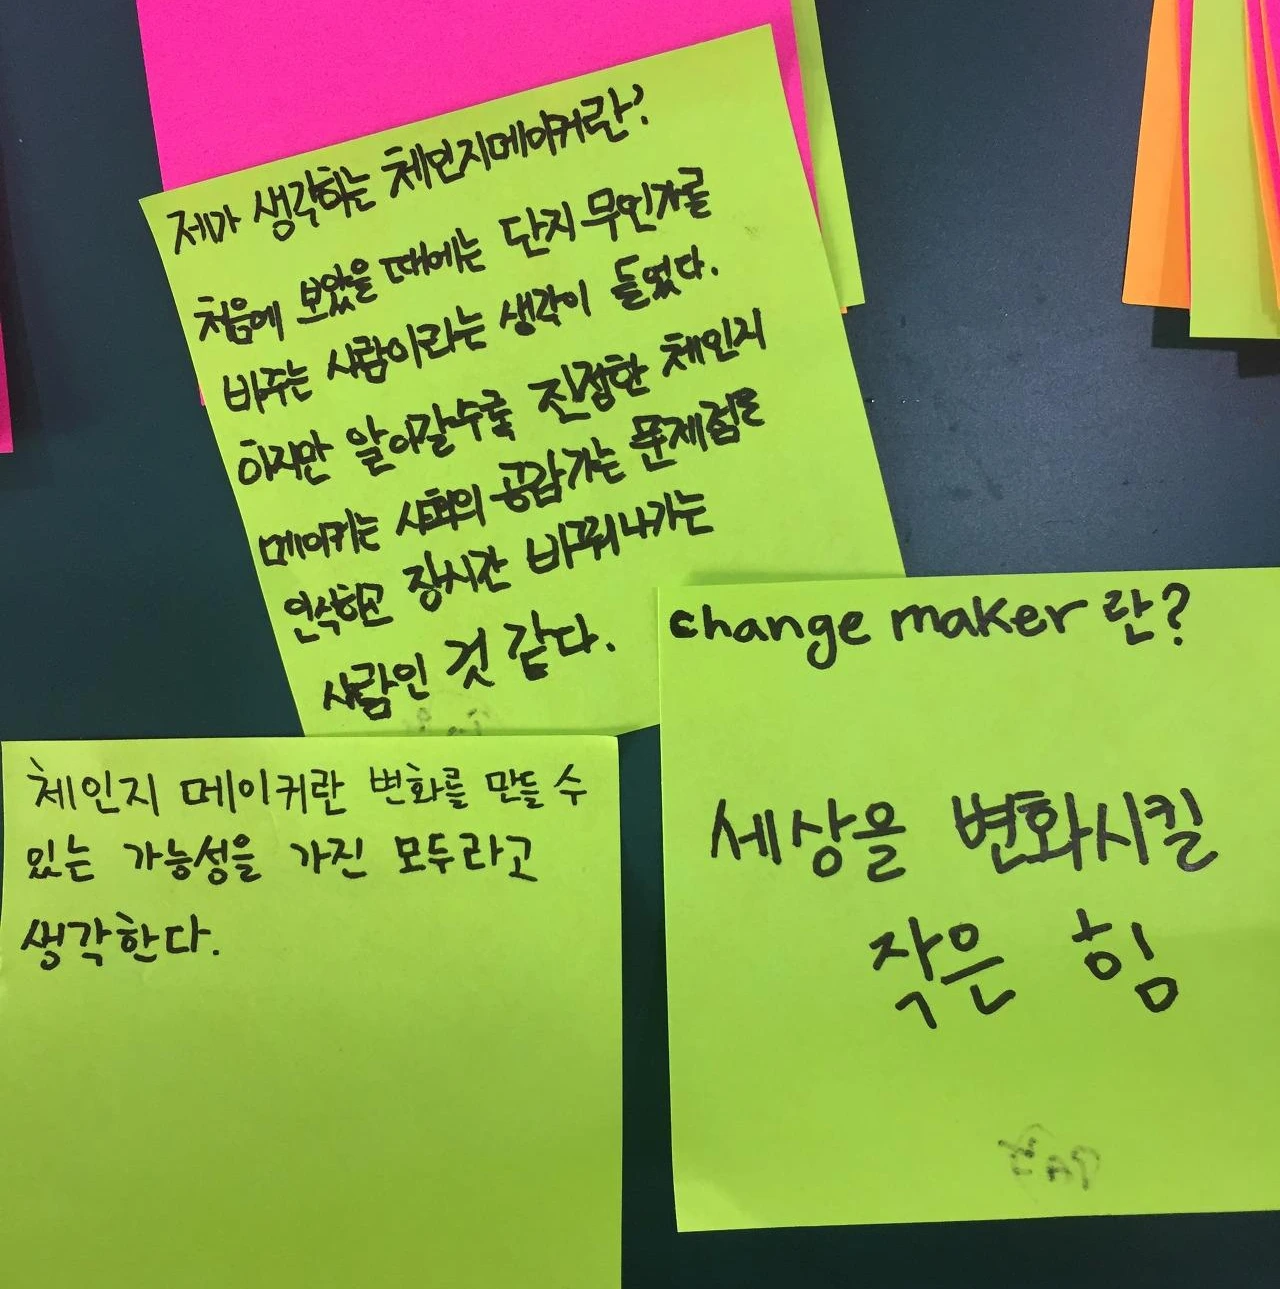 제가 생각하는 체인지메이커란?
처음에 보았을 때에는 단지 무언가를
바꾸는 사람이라는 생각이 들었다.
하지만 알아갈수록 진정한 체인지
메이커는 사회의 공감가는 문제점을
인식하고 장시간 바꿔나가는
사람인 것 같다.
change maker 란?
세상을 변화시킬
작은 힘
체인지 메이커란 변화를 만들 수
있는 가능성을 가진 모두라고
생각한다.